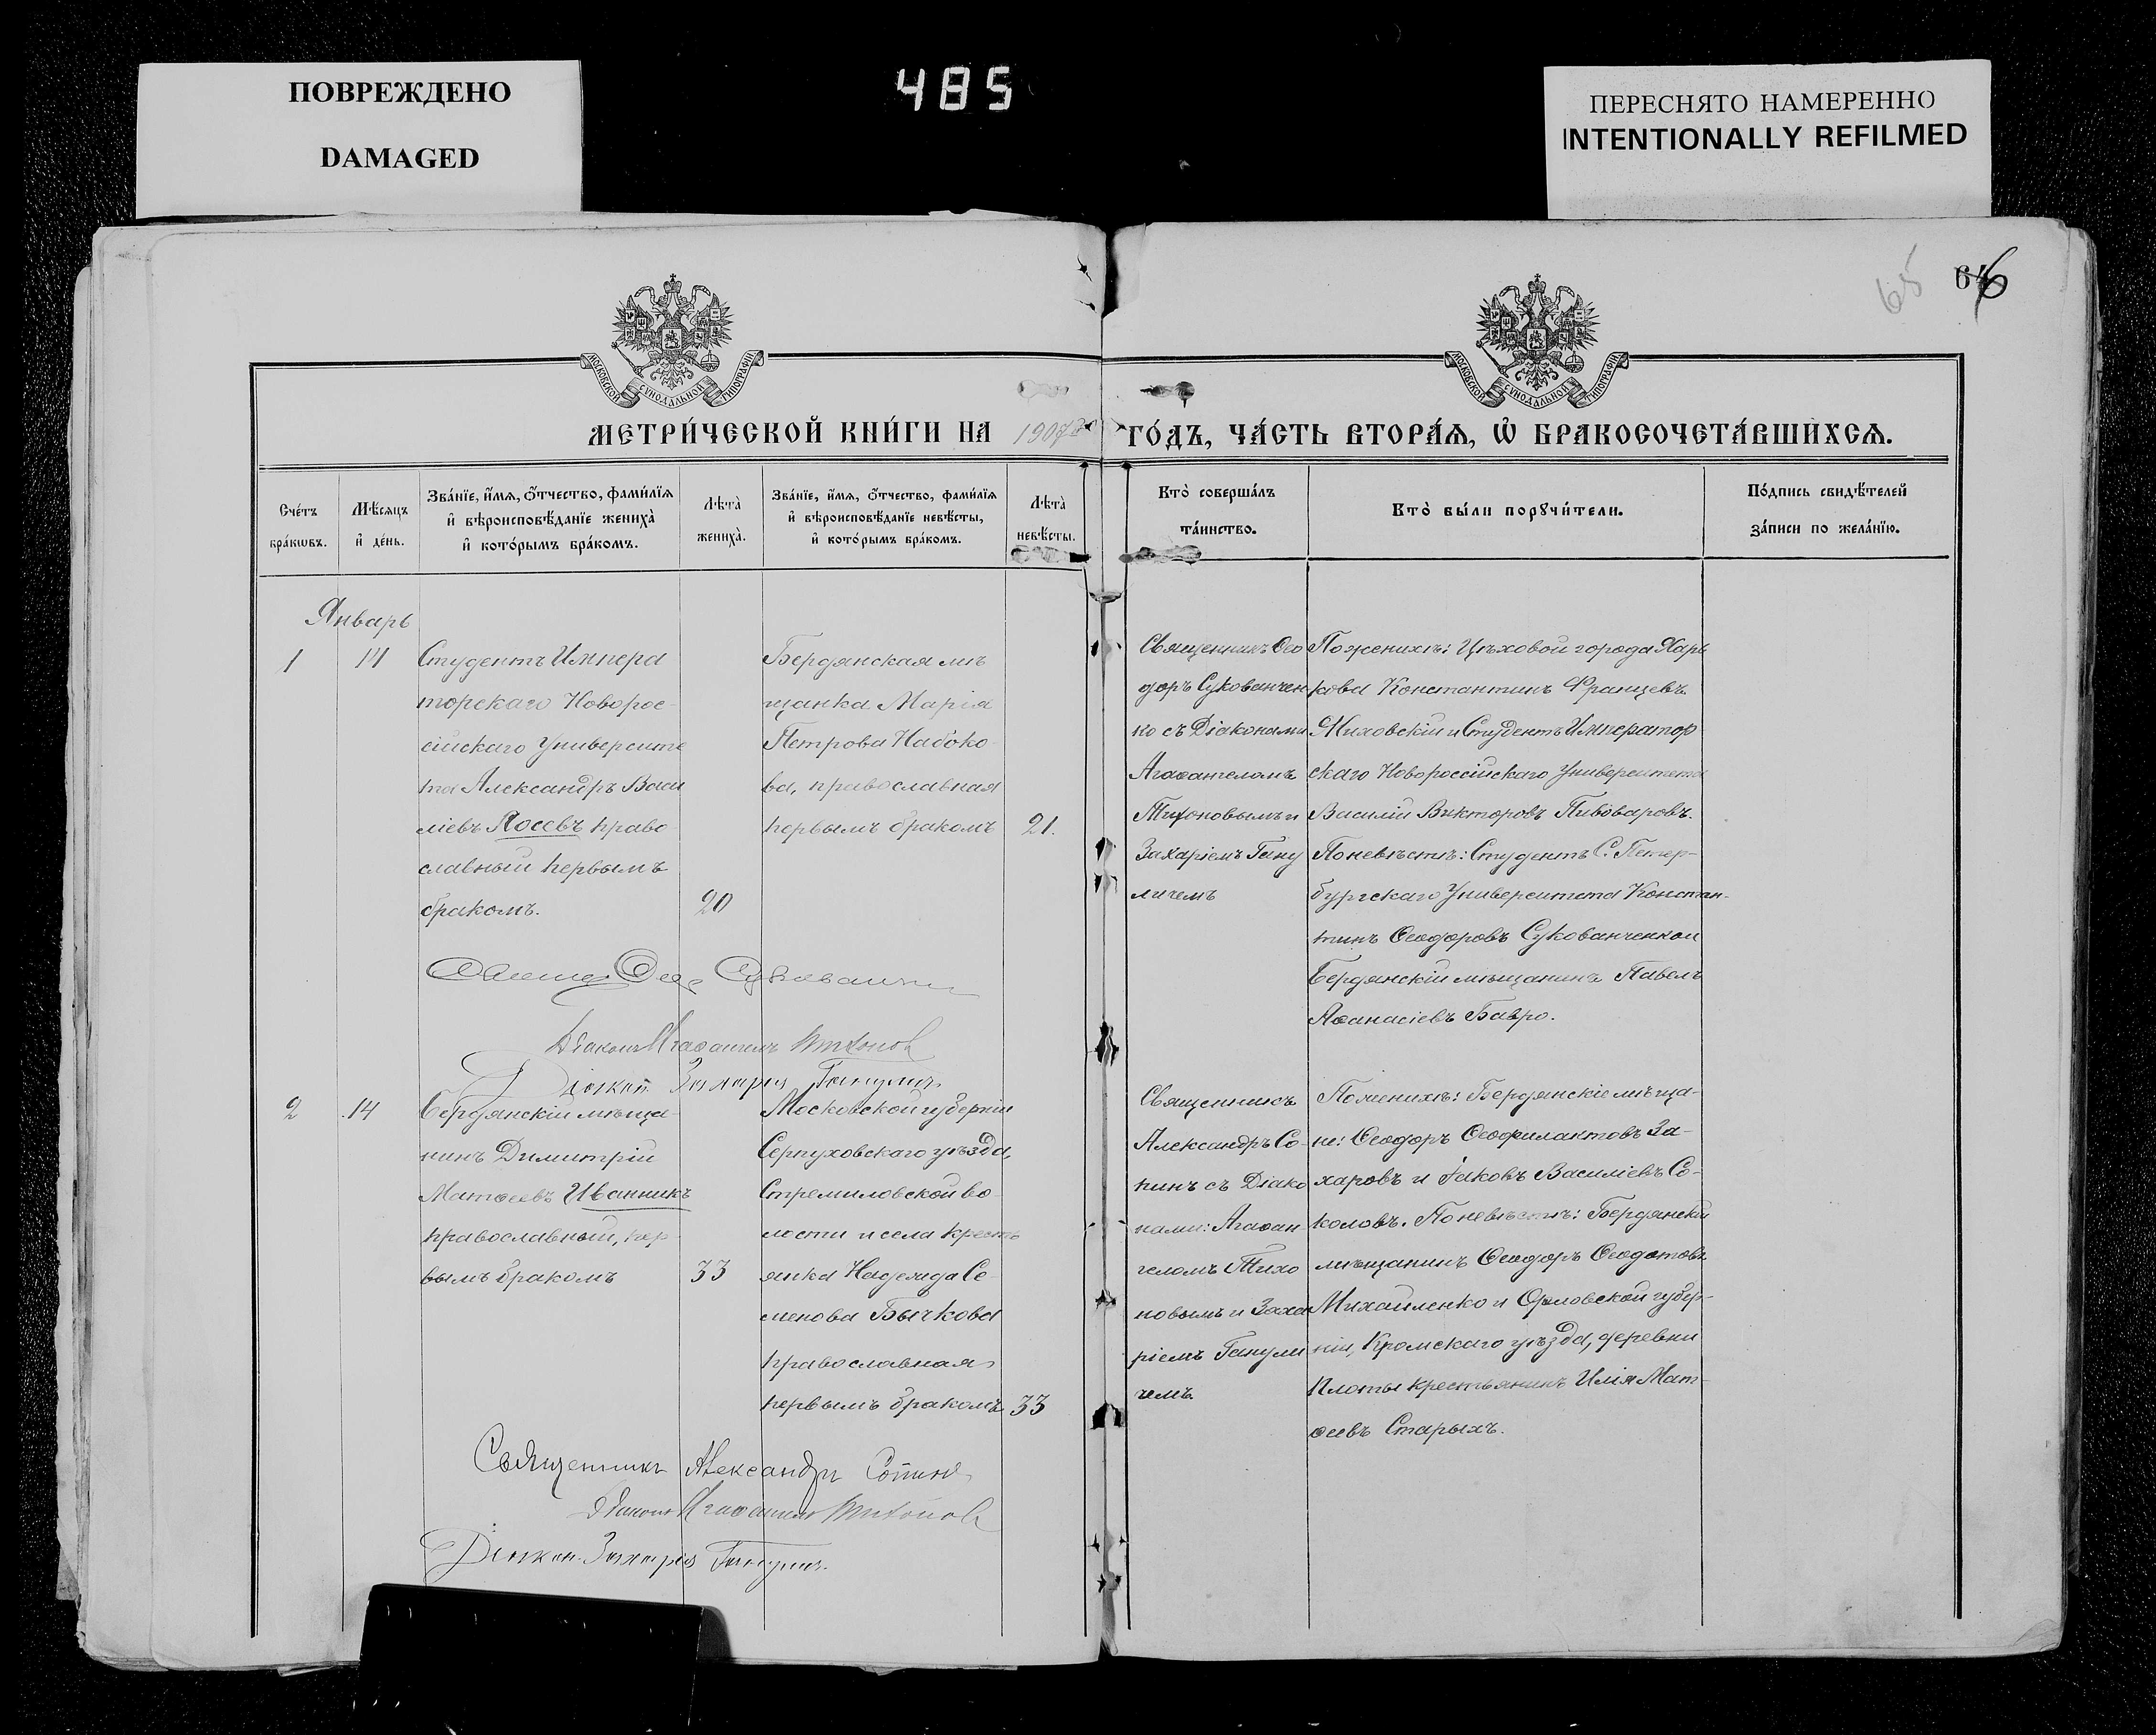 ПОВРЕЖДЕНО
DAMAGED
485
ПЕРЕСНЯТО НАМЕРЕННО
INTENTIONALLY REFILMED
65 646
МОСКОВСКОЙ СУНОДАЛЬНОЙ ТИПОГРАФІИ
МОСКОВСКОЙ СУНОДАЛЬНОЙ ТИПОГРАФІИ
МЕТРИ́ЧЕСКОЙ КНИ́ГИ НА 1907й ГО́ДЪ, ЧА́СТЬ ВТОРА́Ѧ, Ѡ БРАКОСОЧЕТА́ВШИХСѦ.
Сче́тъ
бра́кѡвъ.
Мѣ́сяцъ
и де́нь.
Зва́нїе, и́мѧ, ѻ́тчество, фами́лїѧ
и вѣроисповѣ́данїе жениха̀
и кото́рымъ бра́комъ.
Лѣта̀
жениха̀.
Зва́нїе, и́мѧ, ѻ́тчество, фами́лїѧ
и вѣроисповѣ́данїе невѣ́сты,
и кото́рымъ бра́комъ.
Лѣта̀
невѣ́сты.
Кто̀ соверша́лъ
та́инство.
Кто̀ бы́ли порꙋчи́тели.
По́дпись свидѣ́телей
за́писи по жела́нїю.
Январь
1
14
Студентъ Импера
торскаго Новорос-
сійскаго Университе
та Александръ Васи
ліевъ Лосевъ право
славный первымъ
бракомъ.
20
Бердянская мѣ
щанка Марія
Петрова Набоко-
ва, православная
первымъ бракомъ
21.
Священникъ Ѳео
доръ Сукованчен
ко съ Діаконами
Агаѳангеломъ
Тихоновымъ и
Захаріемъ Гану
личемъ
По женихѣ: Цѣховой города Харь
кова Константинъ Францевъ
Миховскій и Студентъ Император
скаго Новороссійскаго Университета
Василій Викторовъ Пивоваровъ.
По невѣстѣ: Студентъ С. Петер-
бургскаго Университета Констан-
тинъ Ѳеодоровъ Сукованченко и
Бердянскій мѣщанинъ Павелъ
Аѳанасіевъ Бавро.
Діаконъ Агаѳангелъ Тихонов
Діакон Захарія Ганулич
2
14
Бердянскій мѣща-
нинъ Димитрій
Матѳеевъ Иванникъ
православный, пер-
вымъ бракомъ
33
Московской губерніи
Серпуховскаго уѣзда,
Стремиловской во-
лости и села кресть
янка Надежда Се-
менова Бычкова
православная
первымъ бракомъ
33
Священникъ
Александръ Со-
пинъ съ Діако
нами: Агаѳан-
геломъ Тихо
новымъ и Заха
ріемъ Ганули
чемъ
По женихѣ: Бердянскіе мѣща-
не: Ѳеодоръ Ѳеофилактовъ За-
харовъ и Іаковъ Василіевъ Со-
коловъ. По невѣстѣ: Бердянскій
мѣщанинъ Ѳеодоръ Ѳеодотовъ
Михайленко и Орловской губер-
ніи, Кромскаго уѣзда, деревни
Плоты крестьянинъ Илія Мат-
ѳеевъ Старыхъ.
Священникъ Александръ Сопинъ
Діаконъ Агаѳангелъ Тихонов
Діакон Захарія Ганулич.